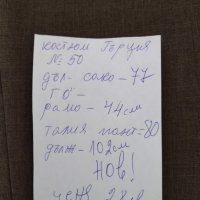 костюм Гърция
№ 50
дъл. сако - 77
ГО -
рамо - 44 см
талия пант - 80
дълж - 102 см
НОВ!
цена 28 лв